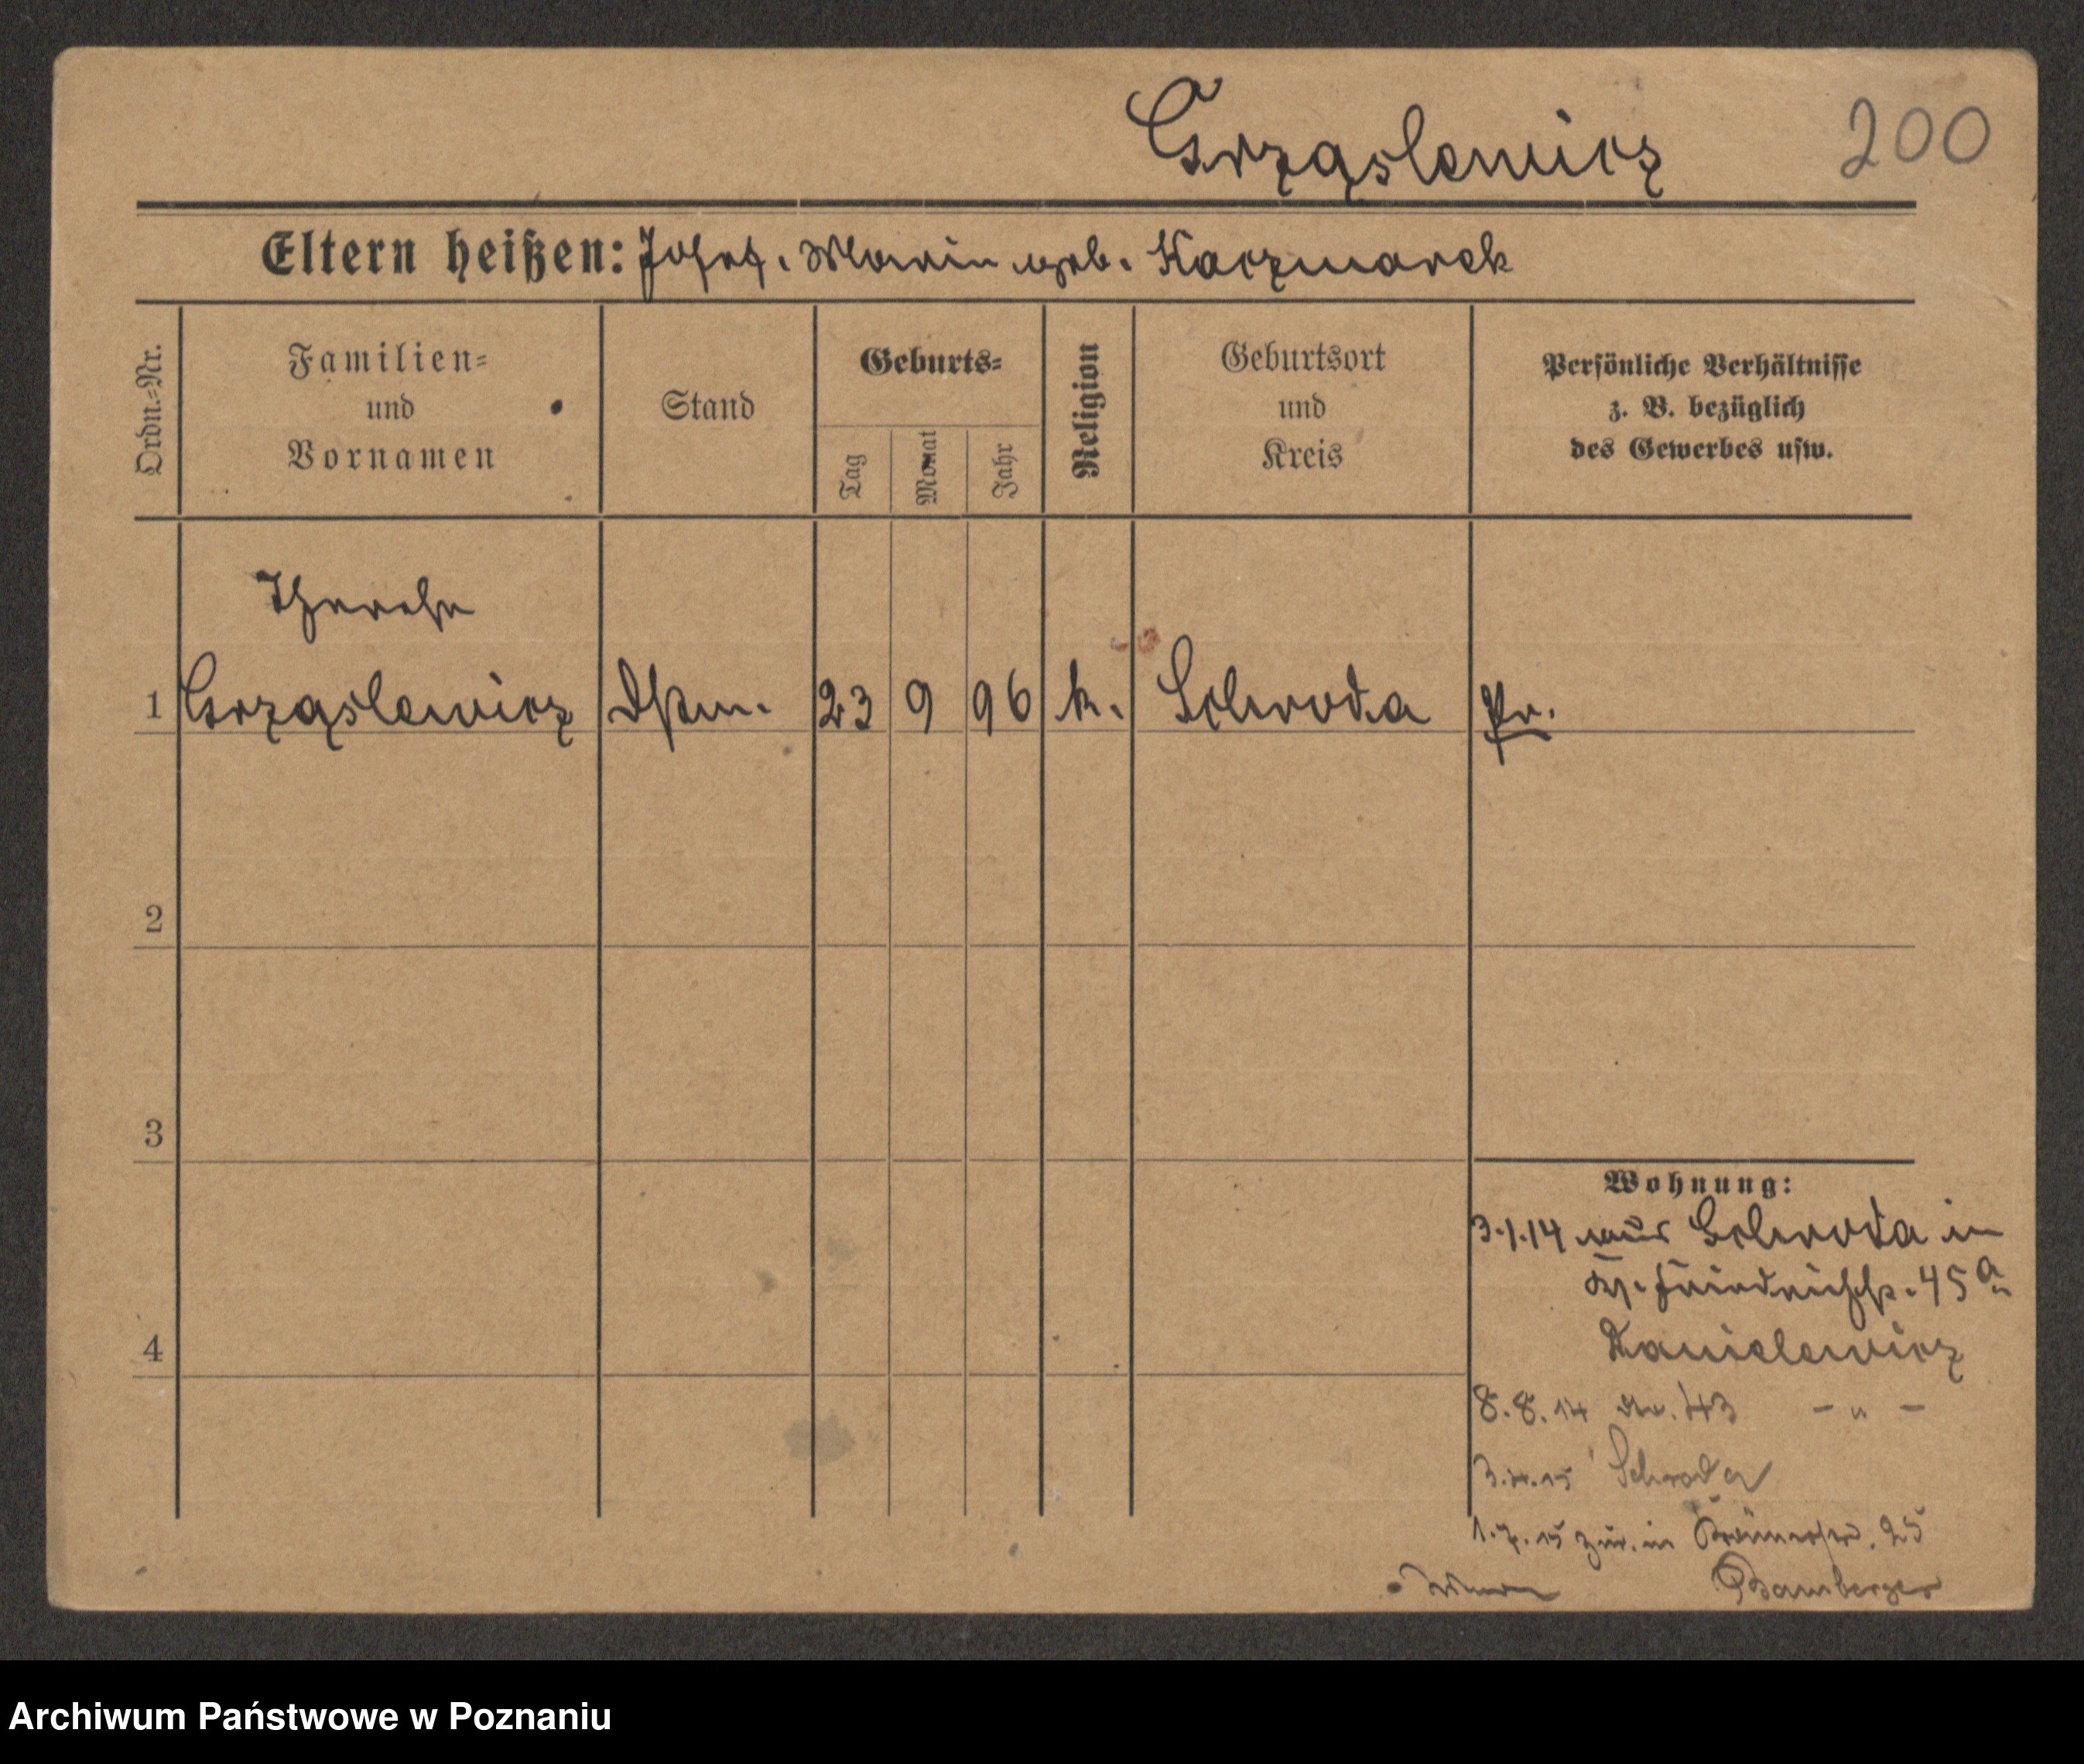 Grząslewicz 200
Eltern heißen: Josef. Marie geb. Kaczmarek
Ordn.-Nr.
Familien-
und
Vornamen
Stand
Geburts-
Tag
Monat
Jahr
Religion
Geburtsort
und
Kreis
Persönliche Verhältnisse
z. B. bezüglich
des Gewerbes usw.
Therese
1 Grząslewicz Dstm. 23 9 96 k. Schroda Pr.
2
3
Wohnung:
3.1.14 aus Schroda in
friedrichstr. 45a
4
Danielewicz
8.8.14 43 - " -
Schroda
zur. in 25
Bamberger
Archiwum Państwowe w Poznaniu